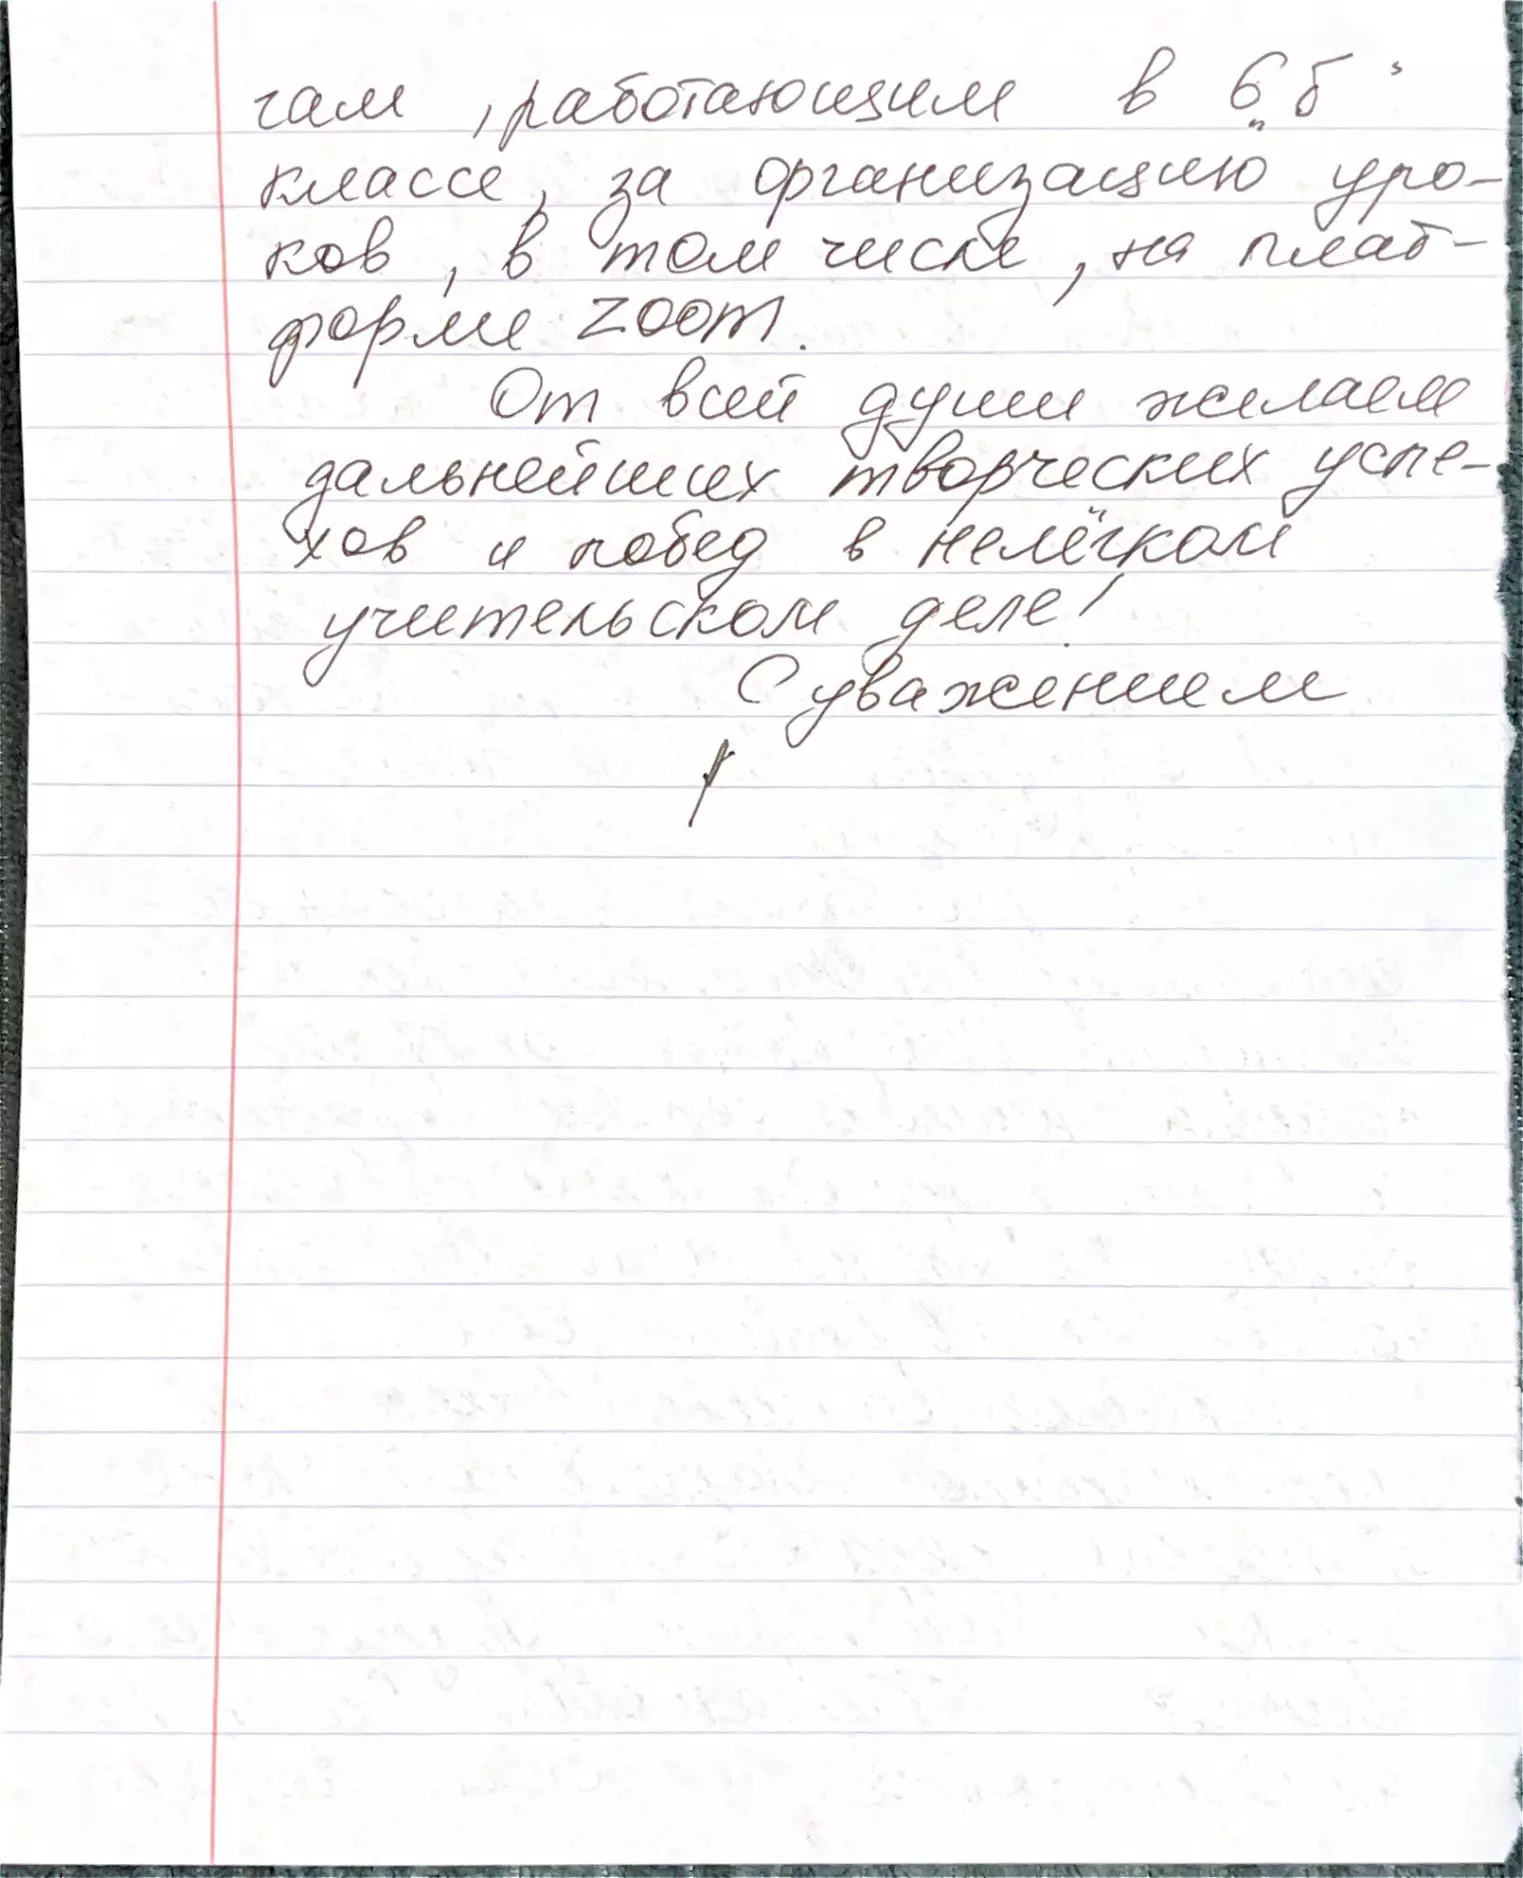 гам, работающим в 6 „б“
классе, за организацию уро-
ков, в том числе, на плат-
форме ZOOM.
От всей души желаем
дальнейших творческих успе-
хов и побед в нелёгком
учительском деле!
С уважением